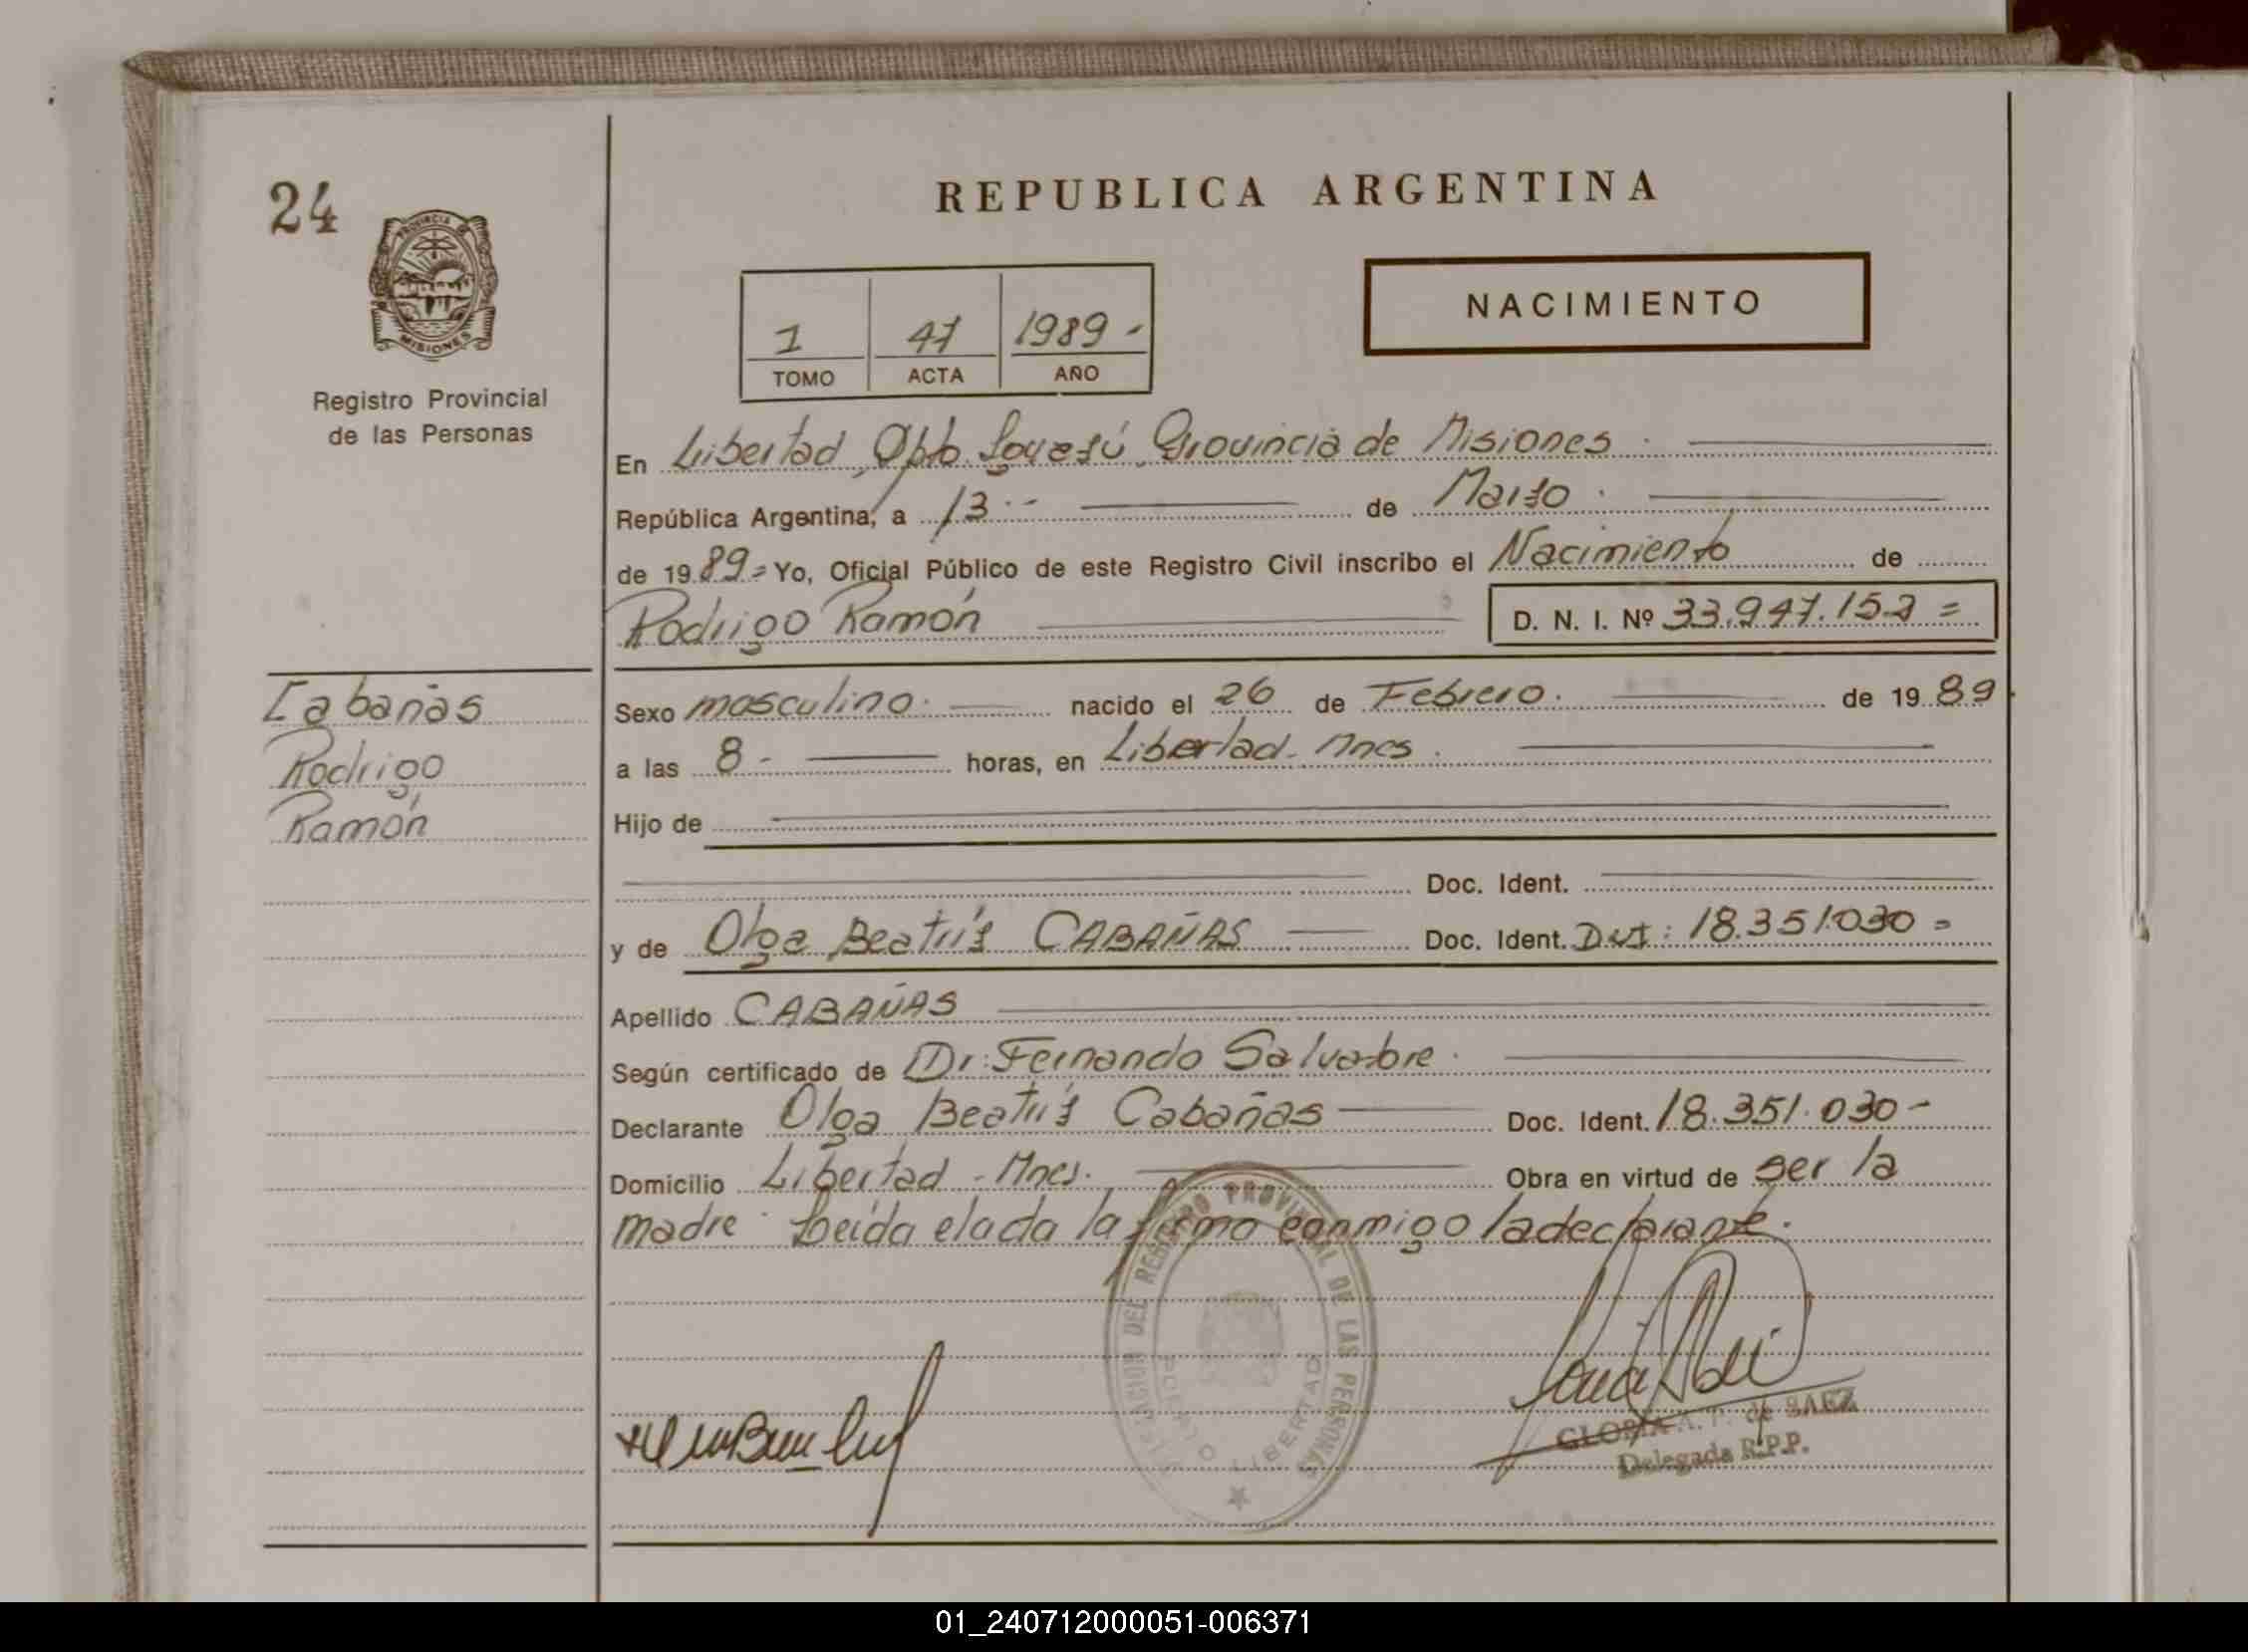 24
REPUBLICA ARGENTINA
PROVINCIA
MISIONES
Registro Provincial
de las Personas
NACIMIENTO
1 47 1989-
TOMO ACTA AÑO
En Libertad, Dpto. Iguazú. Provincia de Misiones.
República Argentina, a 13 de Marzo.
de 1989= Yo, Oficial Público de este Registro Civil inscribo el Nacimiento de
Rodrigo Ramón D. N. I. Nº 33.947.152=
Cabañas
Rodrigo
Ramón
Sexo masculino. nacido el 26 de Febrero. de 1989
a las 8- horas, en Libertad- Mnes.
Hijo de
Doc. Ident.
y de Olga Beatriz CABAÑAS Doc. Ident. DNI: 18.351.030=
Apellido CABAÑAS
Según certificado de Dr: Fernando Salvatore.
Declarante Olga Beatriz Cabañas Doc. Ident. 18.351.030-
Domicilio Libertad - Mnes. Obra en virtud de ser la
madre. Leída el acta la firma conmigo la declarante.
REGISTRO PROVINCIAL DE LAS PERSONAS
LIBERTAD
GLORIA A. de SAEZ
Delegada R.P.P.
01_240712000051-006371